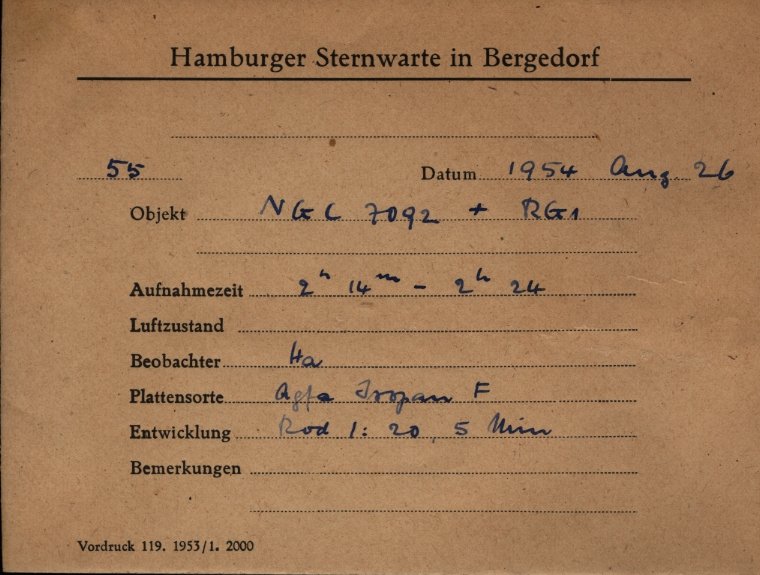 Hamburger Sternwarte in Bergedorf
55 Datum 1954 Aug. 26
Objekt NGC 7092 + RG1
Aufnahmezeit 2h 14m - 2h 24
Luftzustand
Beobachter Ha
Plattensorte Agfa Isopan F
Entwicklung Rod 1:20, 5 Min
Bemerkungen
Vordruck 119. 1953/1. 2000